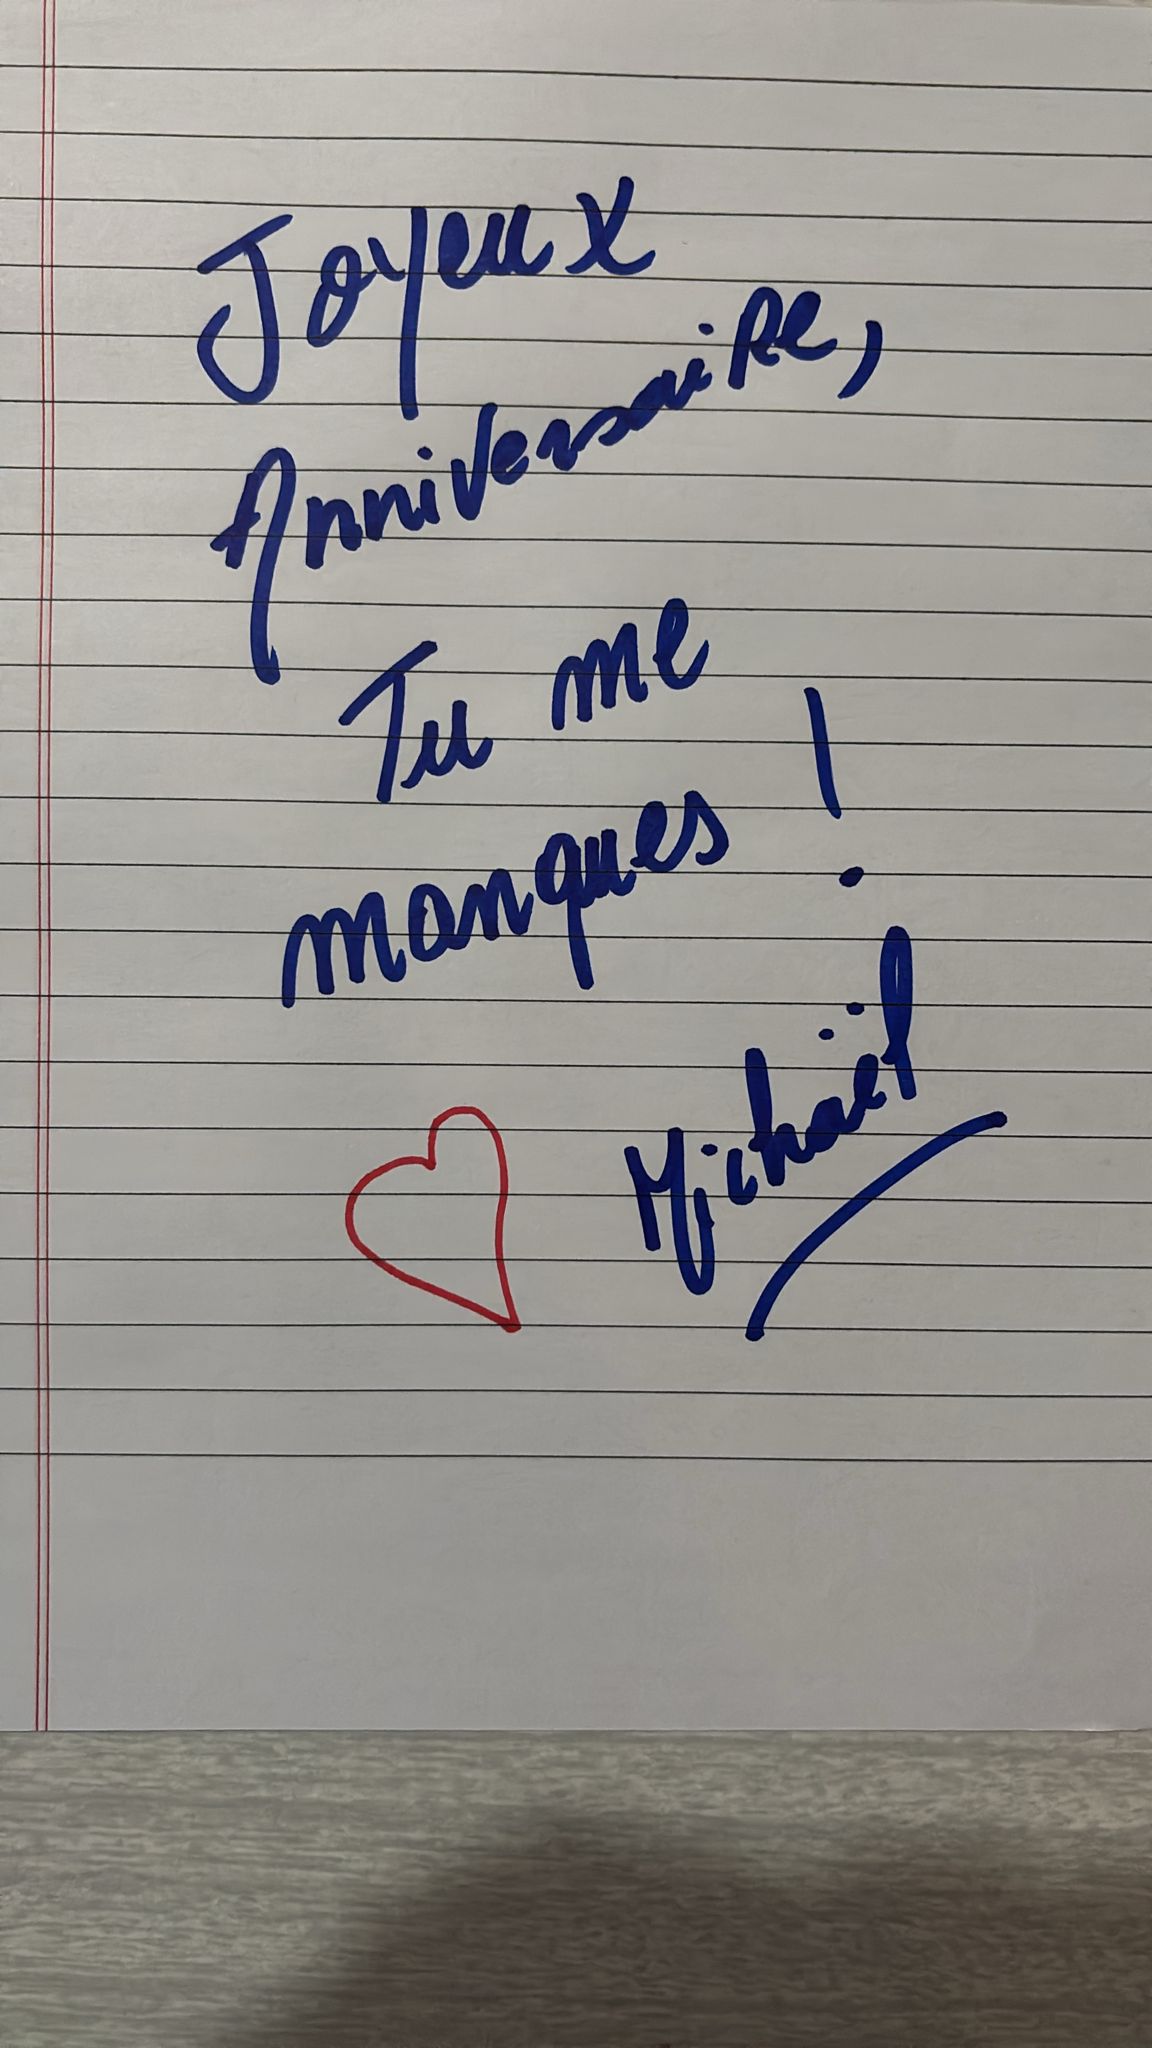 Joyeux
Anniversaire,
Tu me
manques !
Michaël